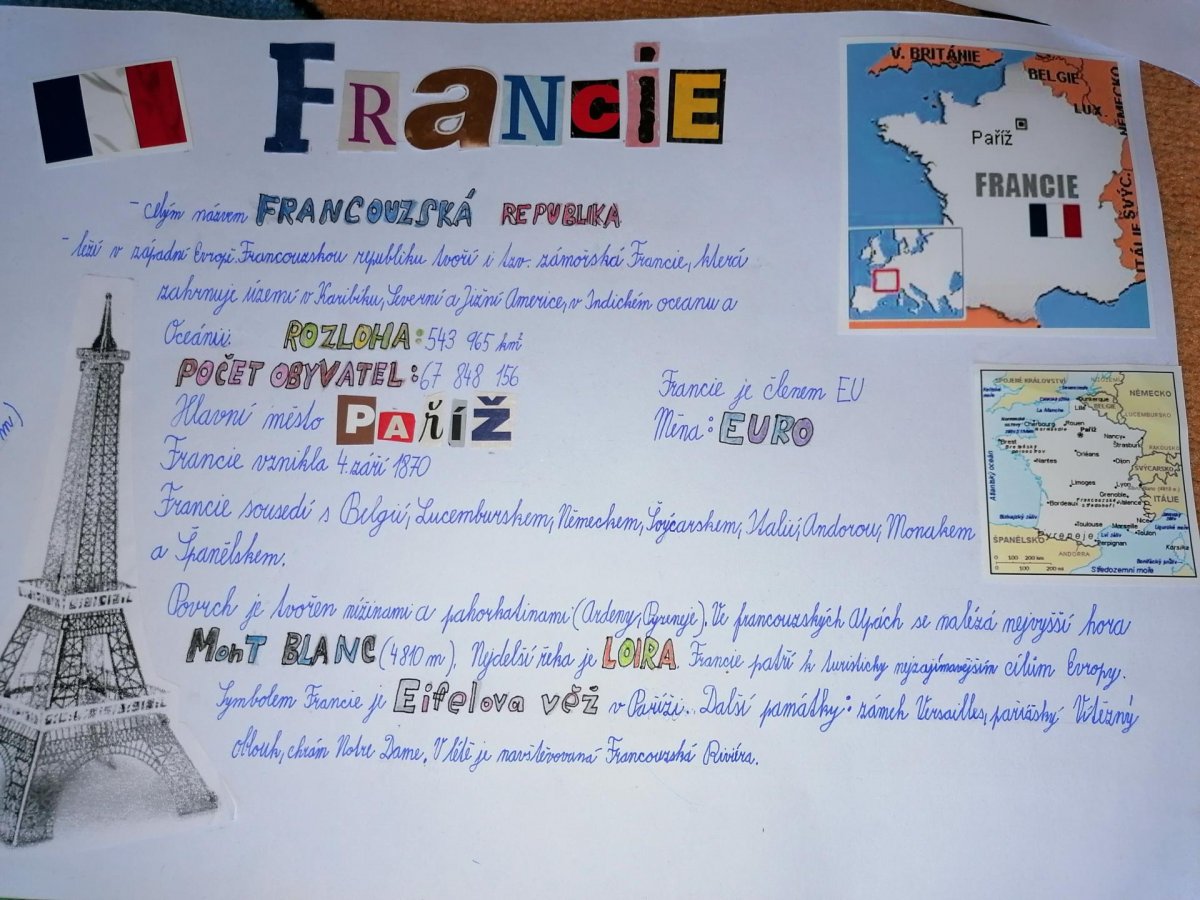 FRANCIE
- celým názvem FRANCOUZSKÁ REPUBLIKA
- leží v západní Evropě. Francouzskou republiku tvoří i tzv. zámořská Francie, která
zahrnuje území v Karibiku, Severní a Jižní Americe, v Indickém oceanu a
Oceánii. ROZLOHA: 543 965 km²
POČET OBYVATEL: 67 848 156
Hlavní město PAříŽ
Francie vznikla 4. září 1870
Francie je členem EU
Měna: EURO
Francie sousedí s Belgií, Lucemburskem, Německem, Švýcarskem, Itálií, Andorou, Monakem
a Španělskem.
Povrch je tvořen nížinami a pahorkatinami (Ardeny, Pyreneje). Ve francouzských Alpách se nalézá nejvyšší hora
MonT BLANC (4810 m). Nejdelší řeka je LOIRA. Francie patří k turisticky nejzajímavějším cílům Evropy.
Symbolem Francie je Eifelova věž v Paříži. Další památky: zámek Versailles, pařížský Vítězný
oblouk, chrám Notre Dame. V létě je navštěvovaná Francouzská Riviéra.
m)
V. BRITÁNIE
BELGIE
NĚMECKO
LUX.
Paříž
FRANCIE
ŠVÝC.
ITÁLIE
SPOJENÉ KRÁLOVSTVÍ
NIZOZEMÍ
NĚMECKO
Dunkerque
Lille
BELGIE
La Manche
LUCEMBURSKO
Cherbourg
Rouen
Paříž
Brest
Nancy
Strasburg
RAKOUSKO
Orléans
Nantes
Dijon
ŠVÝCARSKO
Atlantský oceán
Limoges
Lyon
ITÁLIE
Grenoble
Bordeaux
Valence
Nice
Biskajský záliv
Toulouse
Marseille
Toulon
Pyreneje
Lví záliv
Perpignan
ŠPANĚLSKO
ANDORRA
Korsika
0 100 200 km
0 100 200 mi
Středozemní moře